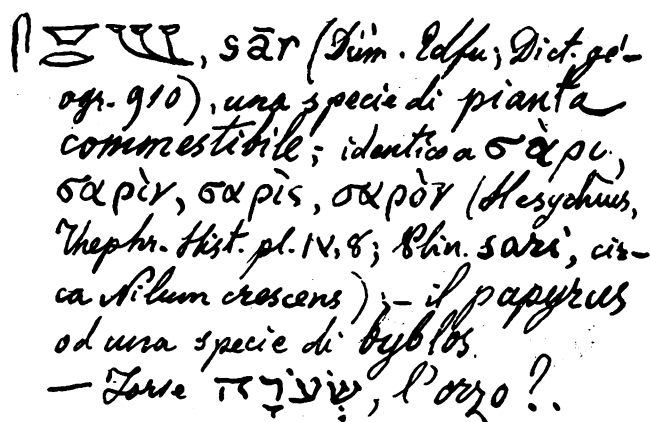 , sār (Düm. Edfu; Dict. gé-
ogr. 910), una specie di pianta
commestibile; identico a σὰρι,
σαρὶν, σαρὶς, σαρὸν (Hesychius,
Thephr. Hist. pl. IV, 8; Plin. sari, cir-
ca Nilum crescens); — il papyrus
od una specie di byblos.
— Forse שְׂעֹרָה, l'orzo?.